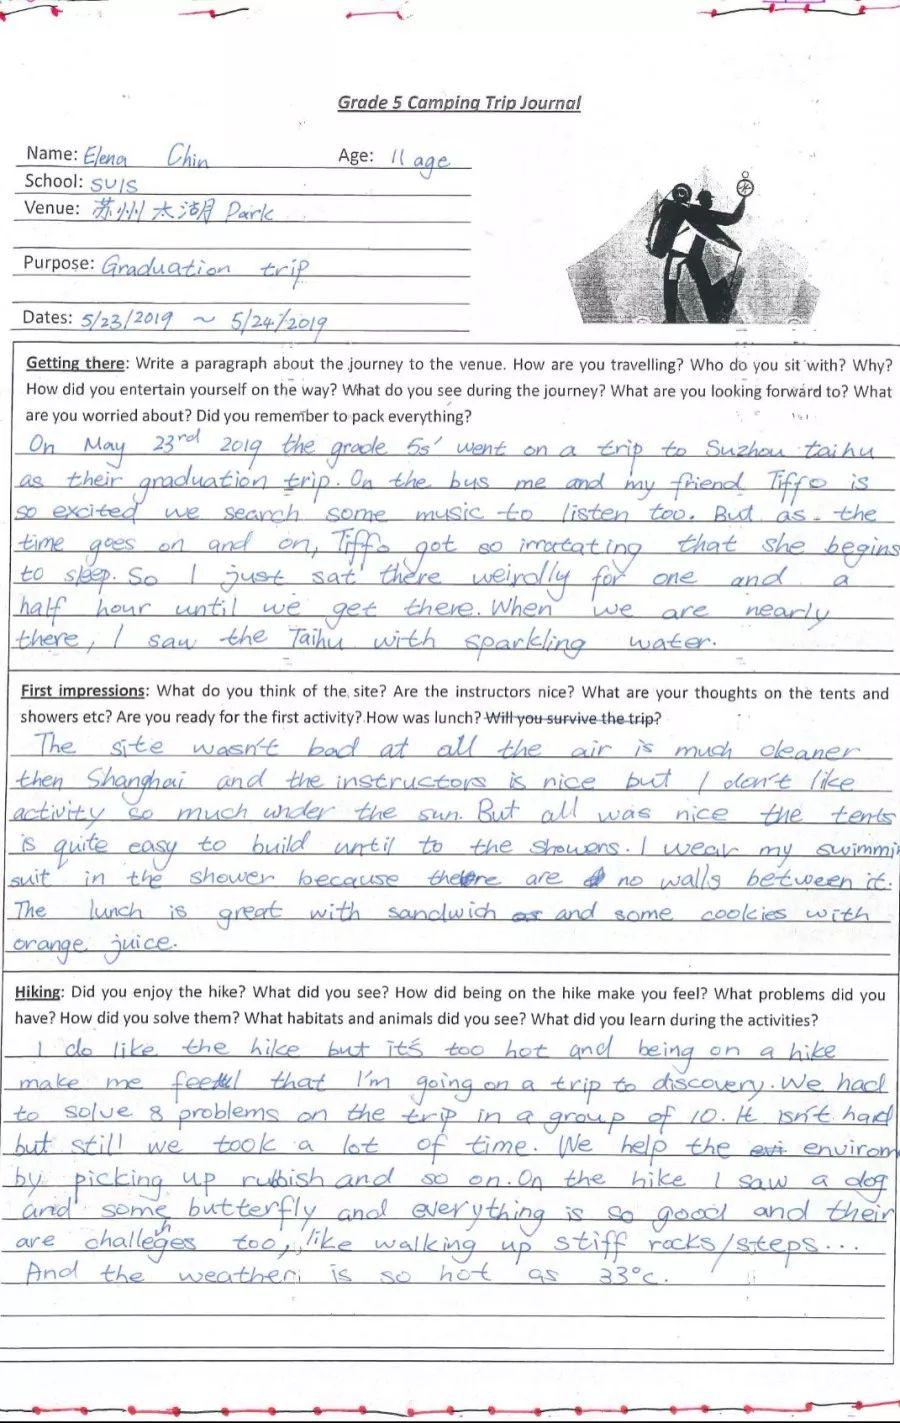 Grade 5 Camping Trip Journal
Name: Elena Chin Age: 11 age
School: SUIS
Venue: 苏州太湖 Park
Purpose: Graduation trip
Dates: 5/23/2019 ~ 5/24/2019
Getting there: Write a paragraph about the journey to the venue. How are you travelling? Who do you sit with? Why?
How did you entertain yourself on the way? What do you see during the journey? What are you looking forward to? What
are you worried about? Did you remember to pack everything?
On May 23rd 2019 the grade 5s' went on a trip to Suzhou taihu
as their graduation trip. On the bus me and my friend Tiffo is
so excited we search some music to listen too. But as the
time goes on and on, Tiffo got so irrortating that she begins
to sleep. So I just sat there weirdly for one and a
half hour until we get there. When we are nearly
there, I saw the Taihu with sparkling water.
First impressions: What do you think of the site? Are the instructors nice? What are your thoughts on the tents and
showers etc? Are you ready for the first activity? How was lunch? Will you survive the trip?
The site wasn't bad at all the air is much cleaner
then Shanghai and the instructors is nice but I don't like
activity so much under the sun. But all was nice the tents
is quite easy to build until to the showers. I wear my swimmi
suit in the shower because there are no walls between it.
The lunch is great with sandwich and some cookies with
orange juice.
Hiking: Did you enjoy the hike? What did you see? How did being on the hike make you feel? What problems did you
have? How did you solve them? What habitats and animals did you see? What did you learn during the activities?
I do like the hike but it's too hot and being on a hike
make me feel that I'm going on a trip to discovery. We had
to solve 8 problems on the trip in a group of 10. It isn't hard
but still we took a lot of time. We help the environm
by picking up rubbish and so on. On the hike I saw a dog
and some butterfly and everything is so good and their
are challenges too, like walking up stiff rocks/steps...
And the weather is so hot as 33°c.